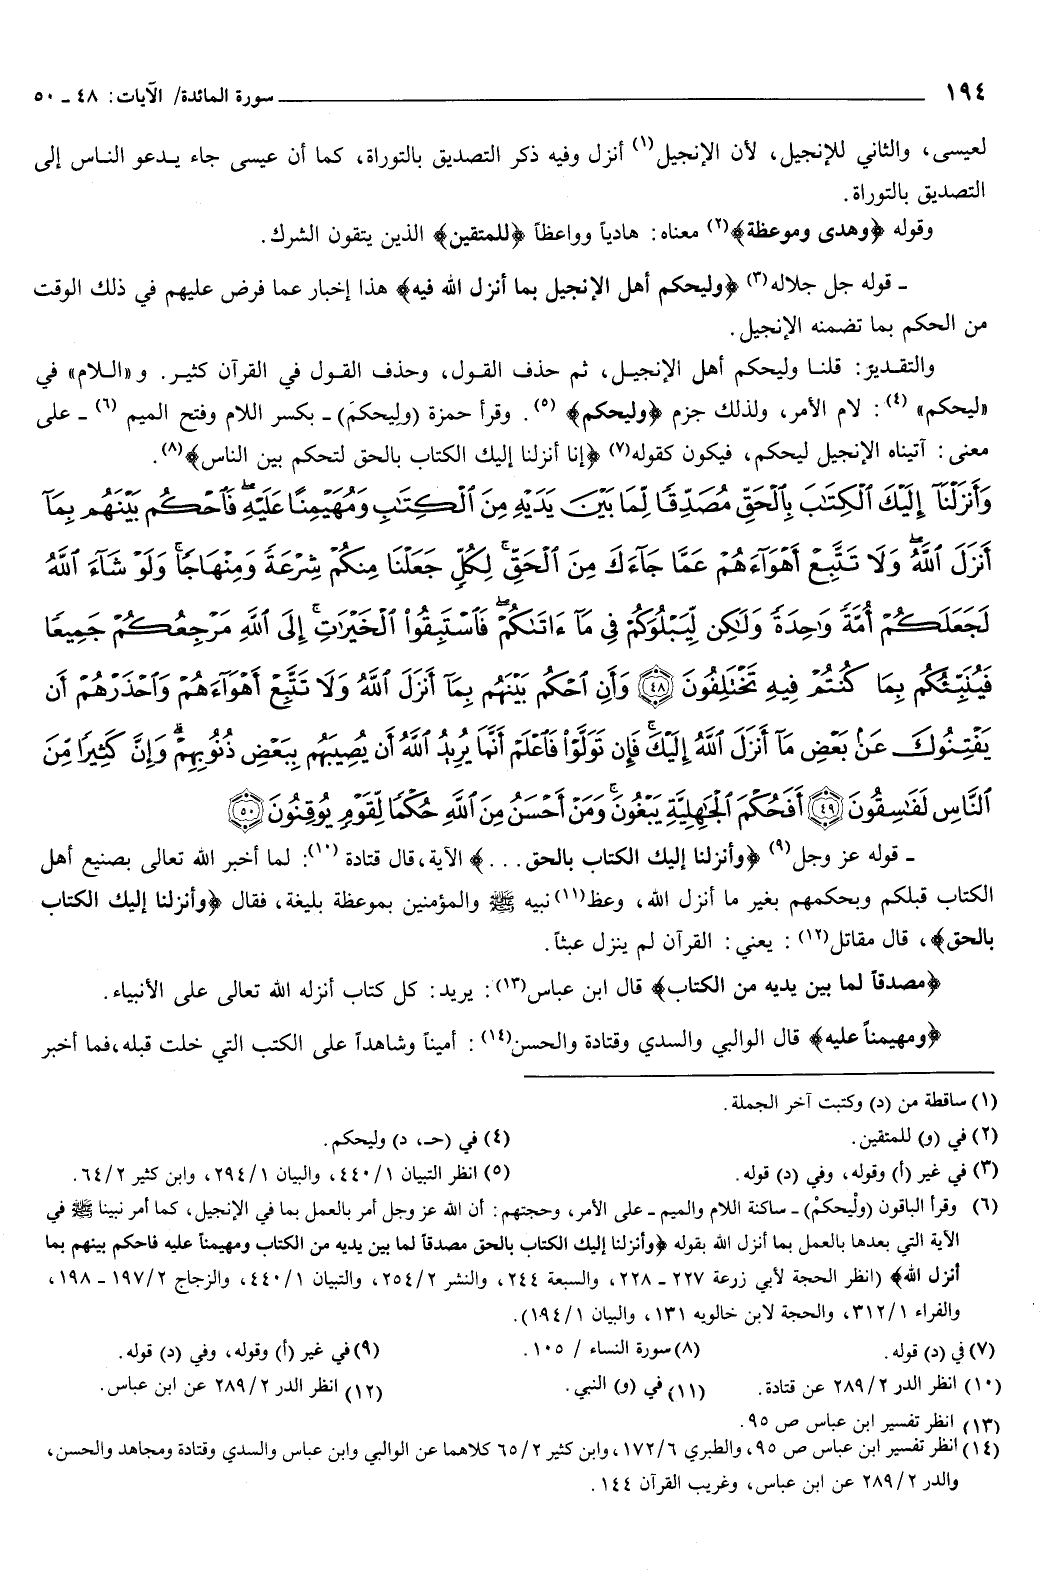 ١٩٤ ـــــــــــ سورة المائدة/ الآيات: ٤٨ ـ ٥٠
لعيسى، والثاني للإنجيل، لأن الإنجيل(١) أنزل وفيه ذكر التصديق بالتوراة، كما أن عيسى جاء يـدعو النـاس إلى
التصديق بالتوراة.
وقوله ﴿وهدى وموعظة﴾(٢) معناه: هادياً وواعظاً ﴿للمتقين﴾ الذين يتقون الشرك.
ـ قوله جل جلاله(٣) ﴿وليحكم أهل الإنجيل بما أنزل الله فيه﴾ هذا إخبار عما فرض عليهم في ذلك الوقت
من الحكم بما تضمنه الإنجيل.
والتقـدير: قلنـا وليحكم أهل الإنجيـل، ثم حذف القـول، وحذف القـول في القرآن كثيـر. و «الـلام» في
«ليحكم» (٤): لام الأمر، ولذلك جزم ﴿وليحكم﴾ (٥). وقرأ حمزة (ولِيحكمَ) ـ بكسر اللام وفتح الميم (٦) ـ على
معنى: آتيناه الإنجيل ليحكم، فيكون كقوله(٧) ﴿إنا أنزلنا إليك الكتاب بالحق لتحكم بين الناس﴾(٨).
وَأَنزَلْنَآ إِلَيْكَ ٱلْكِتَٰبَ بِٱلْحَقِّ مُصَدِّقًا لِّمَا بَيْنَ يَدَيْهِ مِنَ ٱلْكِتَٰبِ وَمُهَيْمِنًا عَلَيْهِ ۖ فَٱحْكُم بَيْنَهُم بِمَآ
أَنزَلَ ٱللَّهُ ۖ وَلَا تَتَّبِعْ أَهْوَآءَهُمْ عَمَّا جَآءَكَ مِنَ ٱلْحَقِّ ۚ لِكُلٍّ جَعَلْنَا مِنكُمْ شِرْعَةً وَمِنْهَاجًا ۚ وَلَوْ شَآءَ ٱللَّهُ
لَجَعَلَكُمْ أُمَّةً وَٰحِدَةً وَلَٰكِن لِّيَبْلُوَكُمْ فِى مَآ ءَاتَىٰكُمْ ۖ فَٱسْتَبِقُوا۟ ٱلْخَيْرَٰتِ ۚ إِلَى ٱللَّهِ مَرْجِعُكُمْ جَمِيعًا
فَيُنَبِّئُكُم بِمَا كُنتُمْ فِيهِ تَخْتَلِفُونَ ٤٨ وَأَنِ ٱحْكُم بَيْنَهُم بِمَآ أَنزَلَ ٱللَّهُ وَلَا تَتَّبِعْ أَهْوَآءَهُمْ وَٱحْذَرْهُمْ أَن
يَفْتِنُوكَ عَنۢ بَعْضِ مَآ أَنزَلَ ٱللَّهُ إِلَيْكَ ۖ فَإِن تَوَلَّوْا۟ فَٱعْلَمْ أَنَّمَا يُرِيدُ ٱللَّهُ أَن يُصِيبَهُم بِبَعْضِ ذُنُوبِهِمْ ۗ وَإِنَّ كَثِيرًا مِّنَ
ٱلنَّاسِ لَفَٰسِقُونَ ٤٩ أَفَحُكْمَ ٱلْجَٰهِلِيَّةِ يَبْغُونَ ۚ وَمَنْ أَحْسَنُ مِنَ ٱللَّهِ حُكْمًا لِّقَوْمٍ يُوقِنُونَ ٥٠
ـ قوله عز وجل(٩) ﴿وأنزلنا إليك الكتاب بالحق . . .﴾ الآية، قال قتادة (١٠): لما أخبر الله تعالى بصنيع أهل
الكتاب قبلكم وبحكمهم بغير ما أنزل الله، وعظ(١١) نبيه ﷺ والمؤمنين بموعظة بليغة، فقال ﴿وأنزلنا إليك الكتاب
بالحق﴾، قال مقاتل(١٢): يعني: القرآن لم ينزل عبثاً.
﴿مصدقاً لما بين يديه من الكتاب﴾ قال ابن عباس(١٣): يريد: كل كتاب أنزله الله تعالى على الأنبياء.
﴿ومهيمناً عليه﴾ قال الوالبي والسدي وقتادة والحسن(١٤): أميناً وشاهداً على الكتب التي خلت قبله، فما أخبر
(١) ساقطة من (د) وكتبت آخر الجملة.
(٢) في (و) للمتقين. (٤) في (حـ، د) وليحكم.
(٣) في غير (أ) وقوله، وفي (د) قوله. (٥) انظر التبيان ١/ ٤٤٠، والبيان ١/ ٢٩٤، وابن كثير ٢/ ٦٤.
(٦) وقرأ الباقون (ولْيحكمْ) ـ ساكنة اللام والميم ـ على الأمر، وحجتهم: أن الله عز وجل أمر بالعمل بما في الإنجيل، كما أمر نبينا ﷺ في
الآية التي بعدها بالعمل بما أنزل الله بقوله ﴿وأنزلنا إليك الكتاب بالحق مصدقاً لما بين يديه من الكتاب ومهيمناً عليه فاحكم بينهم بما
أنزل الله﴾ (انظر الحجة لأبي زرعة ٢٢٧ ـ ٢٢٨، والسبعة ٢٤٤، والنشر ٢/ ٢٥٤، والتبيان ١/ ٤٤٠، والزجاج ٢/ ١٩٧ ـ ١٩٨،
والفراء ١/ ٣١٢، والحجة لابن خالويه ١٣١، والبيان ١/ ١٩٤).
(٧) في (د) قوله. (٨) سورة النساء / ١٠٥. (٩) في غير (أ) وقوله، وفي (د) قوله.
(١٠) انظر الدر ٢/ ٢٨٩ عن قتادة. (١١) في (و) النبي. (١٢) انظر الدر ٢/ ٢٨٩ عن ابن عباس.
(١٣) انظر تفسير ابن عباس ص ٩٥.
(١٤) انظر تفسير ابن عباس ص ٩٥، والطبري ٦/ ١٧٢، وابن كثير ٢/ ٦٥ كلاهما عن الوالبي وابن عباس والسدي وقتادة ومجاهد والحسن،
والدر ٢/ ٢٨٩ عن ابن عباس، وغريب القرآن ١٤٤.